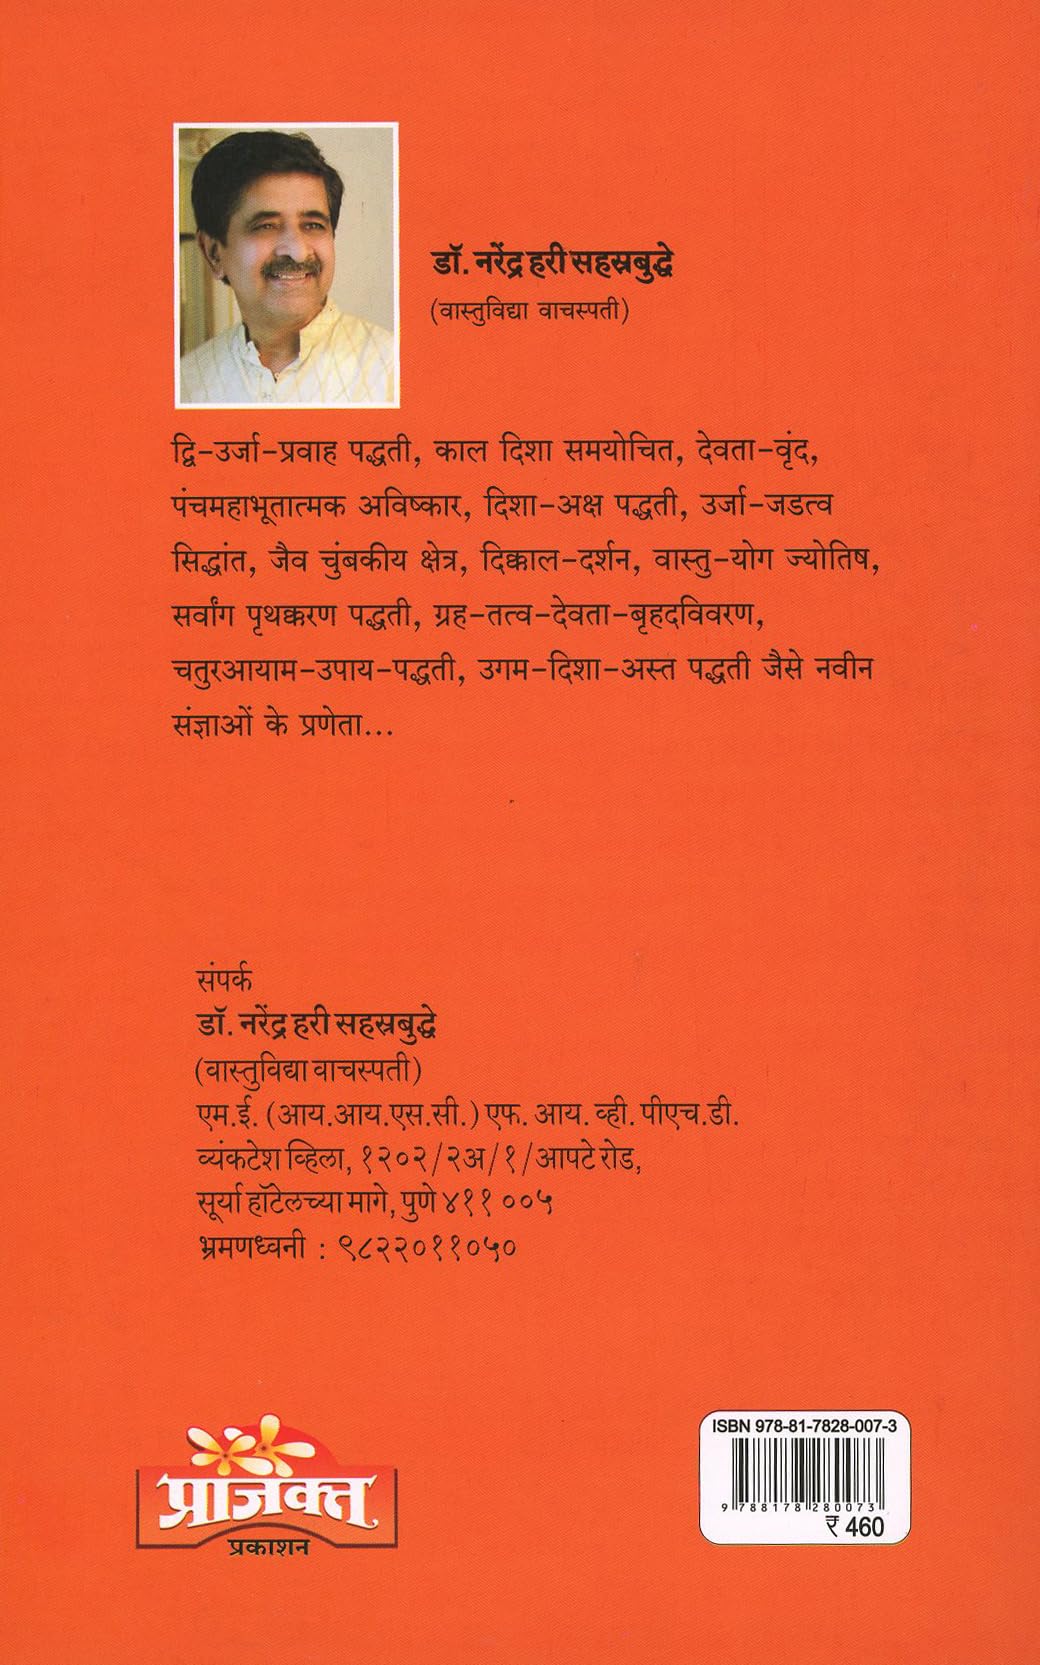 डॉ. नरेंद्र हरी सहस्रबुद्धे
(वास्तुविद्या वाचस्पती)
द्वि-उर्जा-प्रवाह पद्धती, काल दिशा समयोचित, देवता-वृंद,
पंचमहाभूतात्मक अविष्कार, दिशा-अक्ष पद्धती, उर्जा-जडत्व
सिद्धांत, जैव चुंबकीय क्षेत्र, दिक्काल-दर्शन, वास्तु-योग ज्योतिष,
सर्वांग पृथक्करण पद्धती, ग्रह-तत्व-देवता-बृहदविवरण,
चतुरआयाम-उपाय-पद्धती, उगम-दिशा-अस्त पद्धती जैसे नवीन
संज्ञाओं के प्रणेता...
संपर्क
डॉ. नरेंद्र हरी सहस्रबुद्धे
(वास्तुविद्या वाचस्पती)
एम.ई. (आय.आय.एस.सी.) एफ. आय. व्ही. पीएच.डी.
व्यंकटेश व्हिला, १२०२/२अ/१/आपटे रोड,
सूर्या हॉटेलच्या मागे, पुणे ४११ ००५
भ्रमणध्वनी : ९८२२०११०५०
प्राजक्त
प्रकाशन
ISBN 978-81-7828-007-3
9 788178 280073
₹ 460